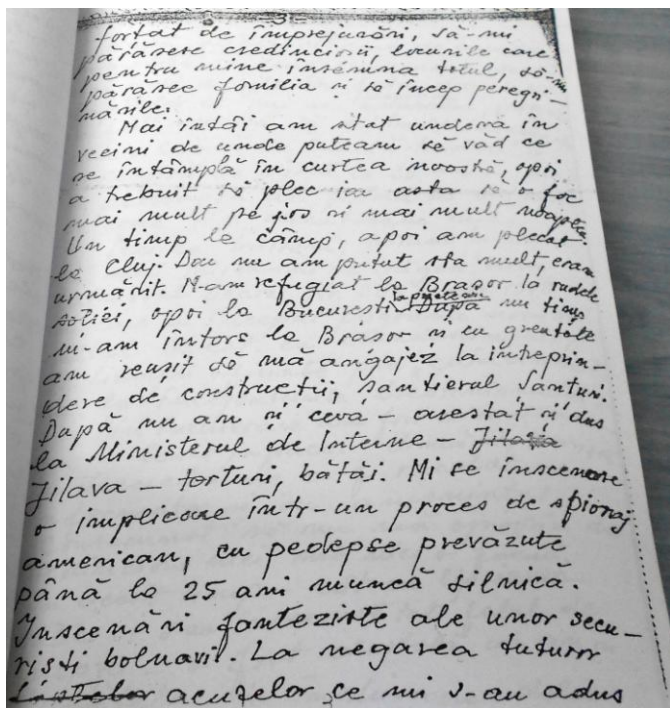 3
forțat de împrejurări, să-mi
părăsesc credincioșii, locurile care
pentru mine însemna totul, să-mi
părăsesc familia și să încep peregri-
nările.
Mai întâi am stat undeva în
vecini de unde puteam să văd ce
se întâmplă în curtea noastră, apoi
a trebuit să plec iar asta să o fac
mai mult pe jos și mai mult noaptea.
Un timp la câmp, apoi am plecat
la Cluj. Dar nu am putut sta mult, eram
urmărit. M-am refugiat la Brașor la rudele
soției, apoi la București la prieteni. După un timp
m-am întors la Brașor și cu greutate
am reușit să mă angajez la întreprin-
dere de construcții, șantierul
După un an și ceva – arestat și dus
la Ministerul de Interne – Jilava
Jilava – torturi, bătăi. Mi se înscenase
o implicare într-un proces de spionaj
american, cu pedepse prevăzute
până la 25 ani muncă silnică.
Inscenări fanteziste ale unor secu-
riști bolnavi. La negarea tuturor
acuzelor ce mi s-au adus